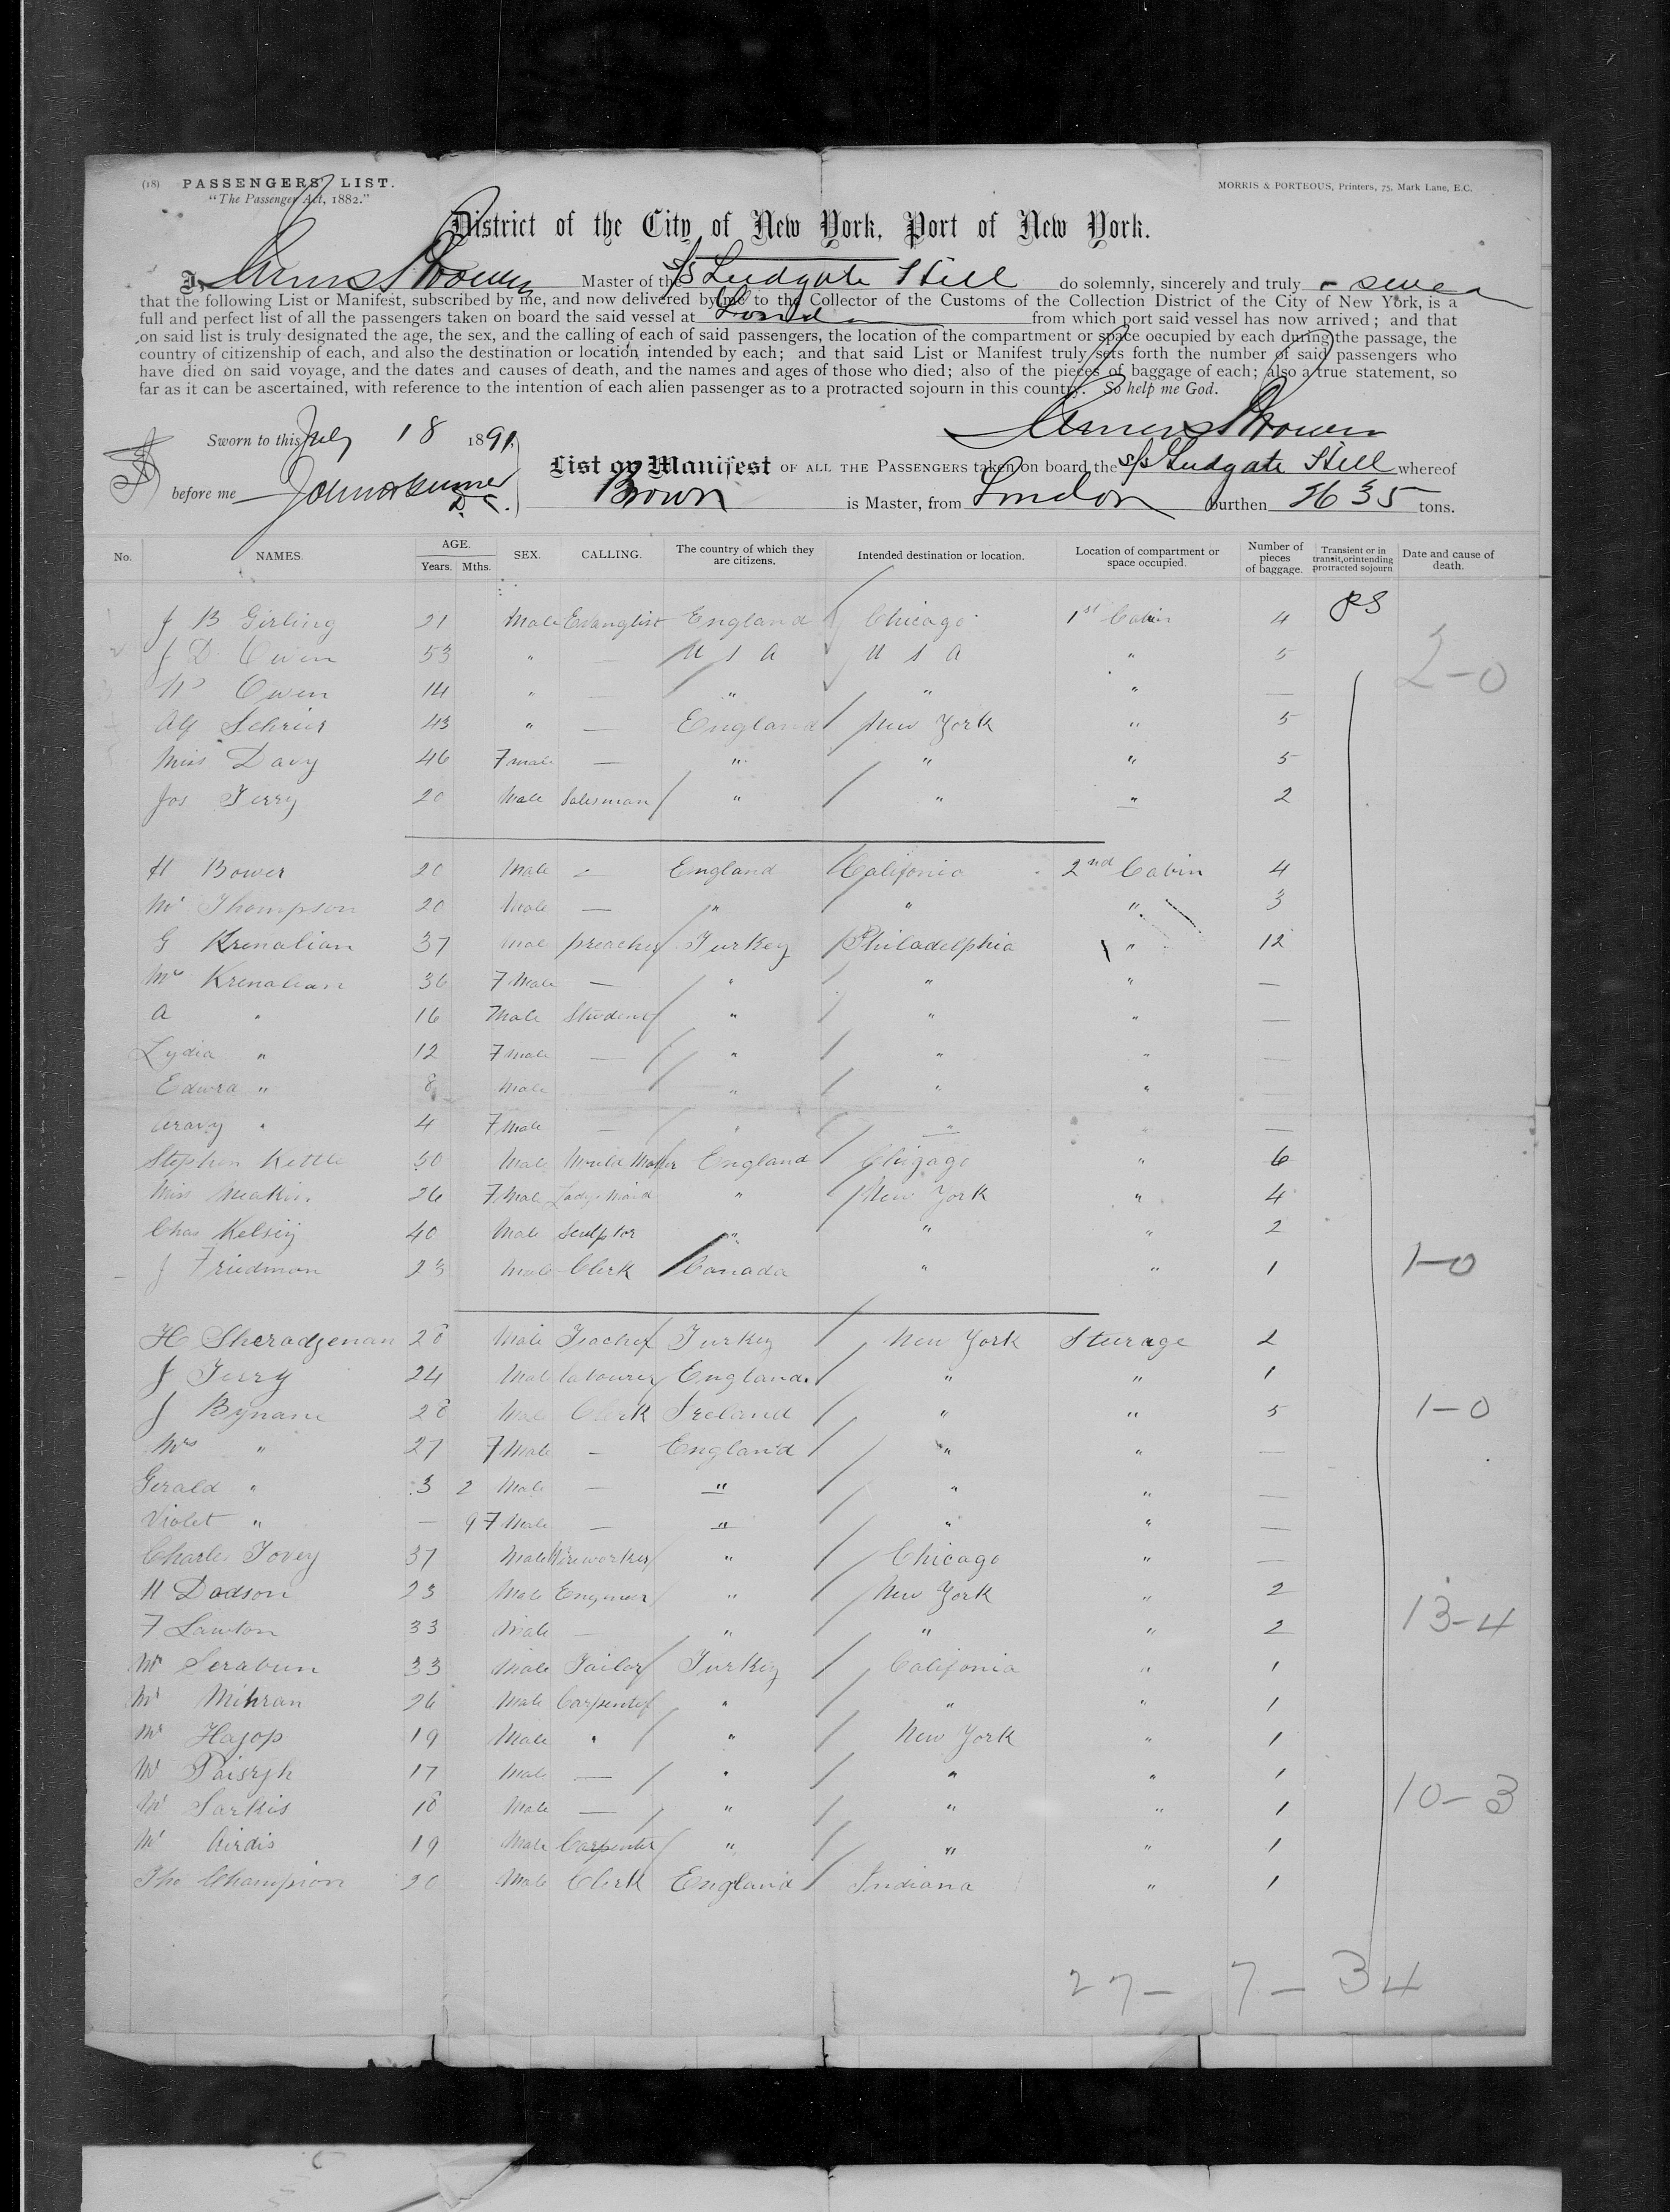 (18) PASSENGERS' LIST.
"The Passenger Act, 1882."
MORRIS & PORTEOUS, Printers, 75, Mark Lane, E.C.
District of the City of New York, Port of New York.
I, Master of the S/S Ludgate Hill do solemnly, sincerely and truly swear
that the following List or Manifest, subscribed by me, and now delivered by me to the Collector of the Customs of the Collection District of the City of New York, is a
full and perfect list of all the passengers taken on board the said vessel at London from which port said vessel has now arrived; and that
on said list is truly designated the age, the sex, and the calling of each of said passengers, the location of the compartment or space occupied by each during the passage, the
country of citizenship of each, and also the destination or location intended by each; and that said List or Manifest truly sets forth the number of said passengers who
have died on said voyage, and the dates and causes of death, and the names and ages of those who died; also of the pieces of baggage of each; also a true statement, so
far as it can be ascertained, with reference to the intention of each alien passenger as to a protracted sojourn in this country. So help me God.
Sworn to this July 18 1891
before me D.C.
List or Manifest OF ALL THE PASSENGERS taken on board the S/S Ludgate Hill whereof
Brown is Master, from London burthen 2635 tons.
No. NAMES. AGE. Years. Mths. SEX. CALLING. The country of which they are citizens. Intended destination or location. Location of compartment or space occupied. Number of pieces of baggage. Transient or in transit, or intending protracted sojourn Date and cause of death.
J B Girling 21 Male Evanglist England Chicago 1st Cabin 4 PS
J D Owen 53 " — U S A U S A " 5 2-0
Owen 14 " — " " " —
Alf Schrier 43 " — England New York " 5
Miss Davy 46 Fmale — " " " 5
Jos Terry 20 Male Salesman " " " 2
H Bower 20 Male — England Califonia 2nd Cabin 4
Mr Thompson 20 Male — " " " 3
G Krenalian 37 Male preacher Turkey Philadelphia " 12
Mrs Krenalian 36 FMale — " " " —
A " 16 Male Student " " " —
Lydia " 12 FMale — " " " —
Edwra " 8 Male — " " " —
Aravy " 4 FMale — " " " —
Stephen Kettle 50 Male Mould Maker England Chigago " 6
Miss Meakin 26 FMale Ladys Maid " New York " 4
Chas Kelsey 40 Male Sculptor " " " 2
J Friedman 23 Male Clerk Canada " " 1 1-0
H Sheradzenan 28 Male Teacher Turkey New York Sturage 2
J Terry 24 Male labourer England " " 1
J Bynane 28 Male Clerk Ireland " " 5 1-0
Mrs " 27 FMale — England " " —
Gerald " 3 2 Male — " " " —
Violet " — 9 FMale — " " " —
Charles Tovey 37 Male Wireworker " Chicago " —
H Dodson 23 Male Engineer " New York " 2
F Lawton 33 Male — " " " 2 13-4
Mr Serabun 33 Male Tailor Turkey Califonia " 1
Mr Mihran 26 Male Carpenter " " " 1
Mr Hagop 19 Male " " New York " 1
Mr 17 Male — " " " 1
Mr Sarkis 18 Male — " " " 1 10-3
Mr 19 Male Carpenter " " " 1
Tho Champion 20 Male Clerk England Indiana " 1
27 - 7 - 34